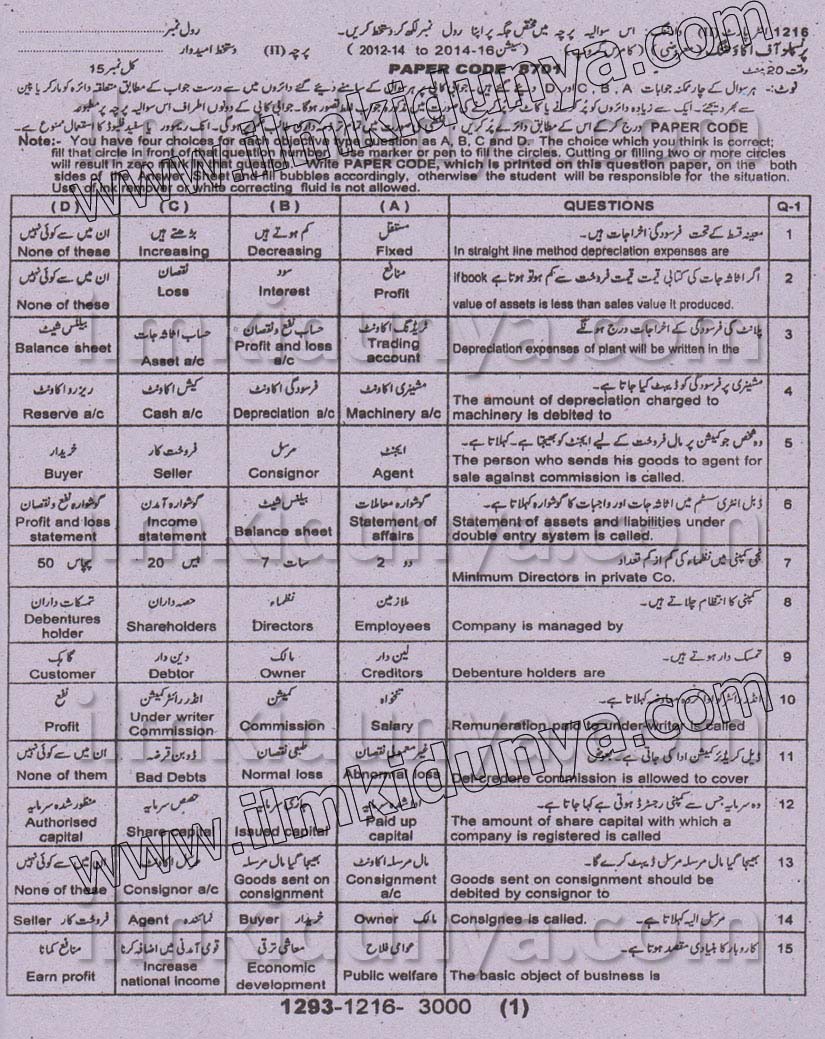 1216
اس سوالیہ پرچہ میں مختص جگہ پر اپنا رول نمبر لکھ کر دستخط کریں۔
رول نمبر
پرنسپلز آف اکاؤنٹنگ (معروضی) (کامرس گروپ) (سیشن 2012-14 to 2014-16) پرچہ (II) دستخط امیدوار
وقت 20 منٹ PAPER CODE 8701 کل نمبر 15
Note:- You have four choices for each objective type question as A, B, C and D. The choice which you think is correct;
fill that circle in front of that question number. Use marker or pen to fill the circles. Cutting or filling two or more circles
will result in zero mark in that question. Write PAPER CODE, which is printed on this question paper, on the both
sides of the Answer Sheet and fill bubbles accordingly, otherwise the student will be responsible for the situation.
Use of ink remover or white correcting fluid is not allowed.
(D) (C) (B) (A) QUESTIONS Q-1
ان میں سے کوئی نہیں بڑھتے ہیں کم ہوتے ہیں مستقل معینہ قسط کے تحت فرسودگی اخراجات ہیں۔ 1
None of these Increasing Decreasing Fixed In straight line method depreciation expenses are
ان میں سے کوئی نہیں نقصان سود منافع اگر اثاثہ جات کی کتابی قیمت قیمت فروخت سے کم ہو تو ہوتا ہے If book 2
None of these Loss Interest Profit value of assets is less than sales value it produced.
بیلنس شیٹ حساب اثاثہ جات حساب نفع و نقصان ٹریڈنگ اکاؤنٹ پلانٹ کی فرسودگی کے اخراجات درج ہونگے 3
Balance sheet Asset a/c Profit and loss a/c Trading account Depreciation expenses of plant will be written in the
ریزرو اکاؤنٹ کیش اکاؤنٹ فرسودگی اکاؤنٹ مشینری اکاؤنٹ مشینری پر فرسودگی کو ڈیبٹ کیا جاتا ہے۔ 4
Reserve a/c Cash a/c Depreciation a/c Machinery a/c The amount of depreciation charged to
machinery is debited to
خریدار فروخت کار مرسل ایجنٹ وہ شخص جو کمیشن پر مال فروخت کے لیے ایجنٹ کو بھیجتا ہے۔ کہلاتا ہے۔ 5
Buyer Seller Consignor Agent The person who sends his goods to agent for
sale against commission is called.
گوشوارہ نفع و نقصان گوشوارہ آمدن بیلنس شیٹ گوشوارہ معاملات ڈبل انٹری سسٹم میں اثاثہ جات اور واجبات کا گوشوارہ کہلاتا ہے۔ 6
Profit and loss statement Income statement Balance sheet Statement of affairs Statement of assets and liabilities under
double entry system is called.
پچاس 50 بیس 20 سات 7 دو 2 نجی کمپنی میں نظماء کی کم از کم تعداد 7
Minimum Directors in private Co.
تمسکات داران حصہ داران نظماء ملازمین کمپنی کا انتظام چلاتے ہیں۔ 8
Debentures holder Shareholders Directors Employees Company is managed by
گاہک دین دار مالک لین دار تمسک دار ہوتے ہیں۔ 9
Customer Debtor Owner Creditors Debenture holders are
نفع انڈر رائٹر کمیشن کمیشن تنخواہ کہلاتا ہے۔ 10
Profit Under writer Commission Commission Salary Remuneration paid to under-writer is called
ان میں سے کوئی نہیں ڈوبن قرضہ طبعی نقصان غیر معمولی نقصان ڈیل کریڈئر کمیشن ادا کی جاتی ہے 11
None of them Bad Debts Normal loss Abnormal loss Del-credere commission is allowed to cover
منظور شدہ سرمایہ حصص سرمایہ جاری سرمایہ ادا شدہ سرمایہ وہ سرمایہ جس سے کمپنی رجسٹرڈ ہوتی ہے کہا جاتا ہے۔ 12
Authorised capital Share capital Issued capital Paid up capital The amount of share capital with which a
company is registered is called
ان میں سے کوئی نہیں مرسل اکاؤنٹ بھیجا گیا مال مرسلہ مال مرسلہ اکاؤنٹ بھیجا گیا مال مرسلہ مرسل ڈیبٹ کرے گا۔ 13
None of these Consignor a/c Goods sent on consignment Consignment a/c Goods sent on consignment should be
debited by consignor to
Seller فروخت کار Agent نمائندہ Buyer خریدار Owner مالک Consignee is called. مرسل الیہ کہلاتا ہے۔ 14
منافع کمانا قومی آمدنی میں اضافہ کرنا معاشی ترقی عوامی فلاح کاروبار کا بنیادی مقصد ہوتا ہے۔ 15
Earn profit Increase national income Economic development Public welfare The basic object of business is
1293-1216- 3000 (1)
www.ilmkidunya.com
www.ilmkidunya.com
ilmkidunya.com
ilmkidunya.com
ilmkidunya.com
ilmkidunya.com